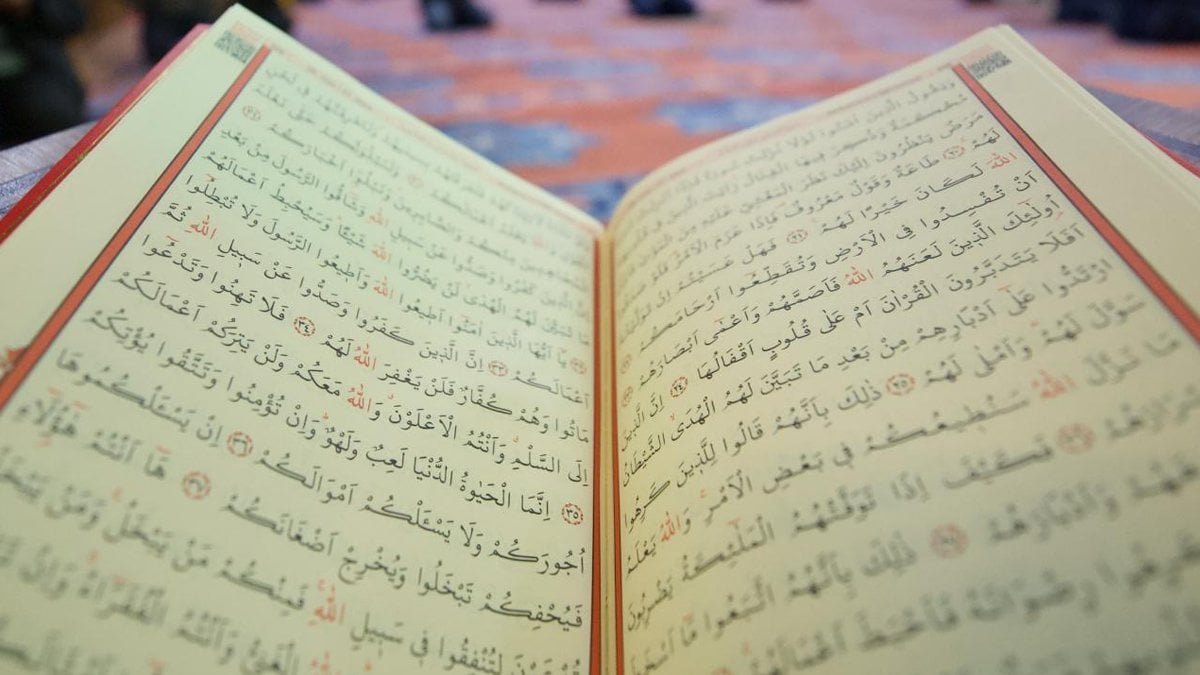 وَيَقُولُ الَّذِينَ اٰمَنُوا لَوْلَا
مُحْكَمَةٌ وَذُكِرَ فِيهَا الْقِتَالُ
مَرَضٌ يَنْظُرُونَ اِلَيْكَ نَظَرَ الْمَغْشِيِّ عَلَيْهِ مِنَ
لَهُمْ ﴿٢٠﴾ طَاعَةٌ وَقَوْلٌ مَعْرُوفٌ فَاِذَا عَزَمَ الْاَمْرُ فَلَوْ
اللّٰهَ لَكَانَ خَيْرًا لَهُمْ ﴿٢١﴾ فَهَلْ عَسَيْتُمْ اِنْ تَوَلَّيْتُمْ
اَنْ تُفْسِدُوا فِي الْاَرْضِ وَتُقَطِّعُوا اَرْحَامَكُمْ
اُولٰٓئِكَ الَّذِينَ لَعَنَهُمُ اللّٰهُ فَاَصَمَّهُمْ وَاَعْمٰٓى اَبْصَارَهُمْ ﴿٢٣﴾
اَفَلَا يَتَدَبَّرُونَ الْقُرْاٰنَ اَمْ عَلٰى قُلُوبٍ اَقْفَالُهَا ﴿٢٤﴾ اِنَّ الَّذِينَ
ارْتَدُّوا عَلٰٓى اَدْبَارِهِمْ مِنْ بَعْدِ مَا تَبَيَّنَ لَهُمُ الْهُدَى الشَّيْطَانُ
سَوَّلَ لَهُمْ وَاَمْلٰى لَهُمْ ﴿٢٥﴾ ذٰلِكَ بِاَنَّهُمْ قَالُوا لِلَّذِينَ كَرِهُوا
مَا نَزَّلَ اللّٰهُ سَنُطِيعُكُمْ فِي بَعْضِ الْاَمْرِ وَاللّٰهُ يَعْلَمُ
﴿٢٦﴾ فَكَيْفَ اِذَا تَوَفَّتْهُمُ الْمَلٰٓئِكَةُ يَضْرِبُونَ
وَاَدْبَارَهُمْ ﴿٢٧﴾ ذٰلِكَ بِاَنَّهُمُ اتَّبَعُوا مَٓا اَسْخَطَ
رِضْوَانَهُ فَاَحْبَطَ اَعْمَالَهُمْ
وَالصَّابِرِينَ وَنَبْلُوَا اَخْبَارَكُمْ ﴿٣١﴾
كَفَرُوا وَصَدُّوا عَنْ سَبِيلِ اللّٰهِ وَشَاقُّوا الرَّسُولَ مِنْ بَعْدِ
مَا تَبَيَّنَ لَهُمُ الْهُدٰى لَنْ يَضُرُّوا اللّٰهَ شَيْئًا وَسَيُحْبِطُ اَعْمَالَهُمْ
﴿٣٢﴾ يَٓا اَيُّهَا الَّذِينَ اٰمَنُٓوا اَطِيعُوا اللّٰهَ وَاَطِيعُوا الرَّسُولَ وَلَا تُبْطِلُٓوا
اَعْمَالَكُمْ ﴿٣٣﴾ اِنَّ الَّذِينَ كَفَرُوا وَصَدُّوا عَنْ سَبِيلِ اللّٰهِ ثُمَّ
مَاتُوا وَهُمْ كُفَّارٌ فَلَنْ يَغْفِرَ اللّٰهُ لَهُمْ ﴿٣٤﴾ فَلَا تَهِنُوا وَتَدْعُٓوا
اِلَى السَّلْمِ وَاَنْتُمُ الْاَعْلَوْنَ وَاللّٰهُ مَعَكُمْ وَلَنْ يَتِرَكُمْ اَعْمَالَكُمْ
﴿٣٥﴾ اِنَّمَا الْحَيٰوةُ الدُّنْيَا لَعِبٌ وَلَهْوٌ وَاِنْ تُؤْمِنُوا وَتَتَّقُوا يُؤْتِكُمْ
اُجُورَكُمْ وَلَا يَسْـَٔلْكُمْ اَمْوَالَكُمْ ﴿٣٦﴾ اِنْ يَسْـَٔلْكُمُوهَا
فَيُحْفِكُمْ تَبْخَلُوا وَيُخْرِجْ اَضْغَانَكُمْ ﴿٣٧﴾ هَٓا اَنْتُمْ هٰٓؤُ۬لَٓاءِ
تُدْعَوْنَ لِتُنْفِقُوا فِي سَبِيلِ اللّٰهِ فَمِنْكُمْ مَنْ يَبْخَلُ وَمَنْ يَبْخَلْ
الْغَنِيُّ وَاَنْتُمُ الْفُقَرَٓاءُ وَاِنْ